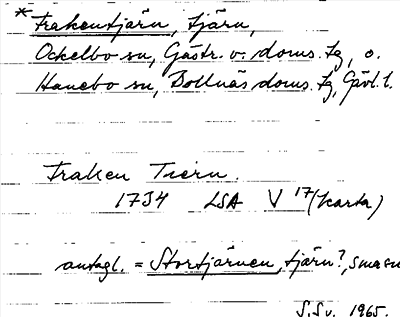 * Frakentjärn, tjärn,
Ockelbo sn, Gästr. v. doms. tg, o.
Hanebo sn, Bollnäs doms. tg, Gävl. l.
Fraken Tiern.
1734 LSA V 17 (karta)
antagl. = Stortjärnen, tjärn?, smasn
S.Sv. 1965.